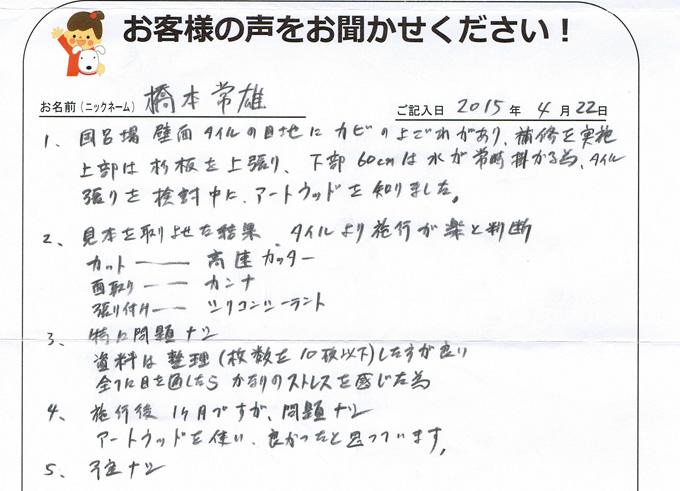 お客様の声をお聞かせください！
お名前（ニックネーム） 橋本 常雄
ご記入日 2015 年 4 月 22日
1、 風呂場 壁面 タイルの目地に カビのよごれがあり、補修を実施
上部は 杉板を上張り、下部 60cmは 水が常時掛かる為、タイル
張りを検討中に、アートウッドを知りました。
2、 見本を取りよせた結果、タイルより施行が楽と判断
カット ―― 高速カッター
面取り ―― カンナ
張り付け ―― シリコンシーラント
3、 特に問題ナシ
資料は整理（枚数を10枚以下）した方が良い
全てに目を通したら かなりのストレスを感じた為
4、 施行後 1ヶ月ですが、問題ナシ
アートウッドを使い、良かったと思っています。
5、 予定ナシ